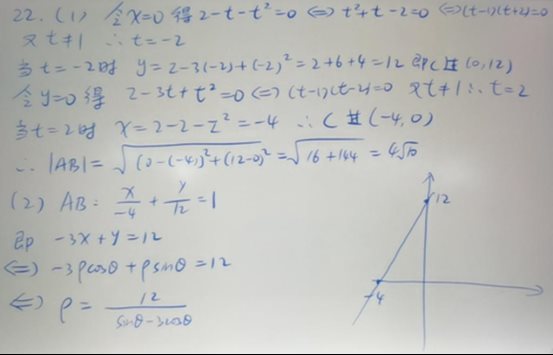 22. (1) 令x=0 得 2-t-t²=0 ⟺ t²+t-2=0 ⟺(t-1)(t+2)=0
又t≠1 ∴t=-2
当t=-2时 y=2-3(-2)+(-2)²=2+6+4=12 即C过(0,12)
令y=0得 2-3t+t²=0⟺(t-1)(t-2)=0 又t≠1∴t=2
当t=2时 x=2-2-2²=-4 ∴C过(-4,0)
∴|AB|=√((0-(-4))²+(12-0)²)=√(16+144)=4√10
(2) AB: x/-4 + y/12 =1
即 -3x+y=12
⟺ -3ρcosθ+ρsinθ=12
⟺ ρ= 12/(sinθ-3cosθ)
12
-4